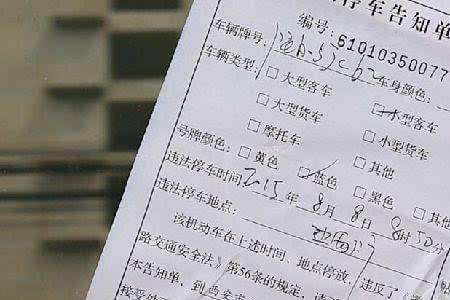 停车告知单
编号: 61010350077
车辆牌号: 车身颜色:
车辆类型: □大型客车 □小型客车
□大型货车 □小型货车
□摩托车 □其他
号牌颜色: □黄色 □蓝色 □黑色 □其他
违法停车时间: 2015年8月8日8时50分
违法停车地点:
该机动车在上述时间、地点停放,
违反了《
路交通安全法》第56条的规定,
本告知单,到西安市
接受处